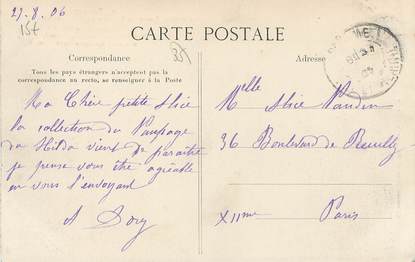 27-8.06
15f
35
CARTE POSTALE
Correspondance
Adresse
Tous les pays étrangers n'acceptent pas la
correspondance au recto, se renseigner à la Poste
Ma Chère petite Alice
la collection du
du vient de paraître
je pense vous être agréable
en vous l'envoyant
A
Melle Alice
36 Boulevard de Reuilly
XIIme Paris